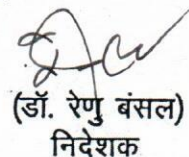 (डॉ. रेणु बंसल)
निदेशक